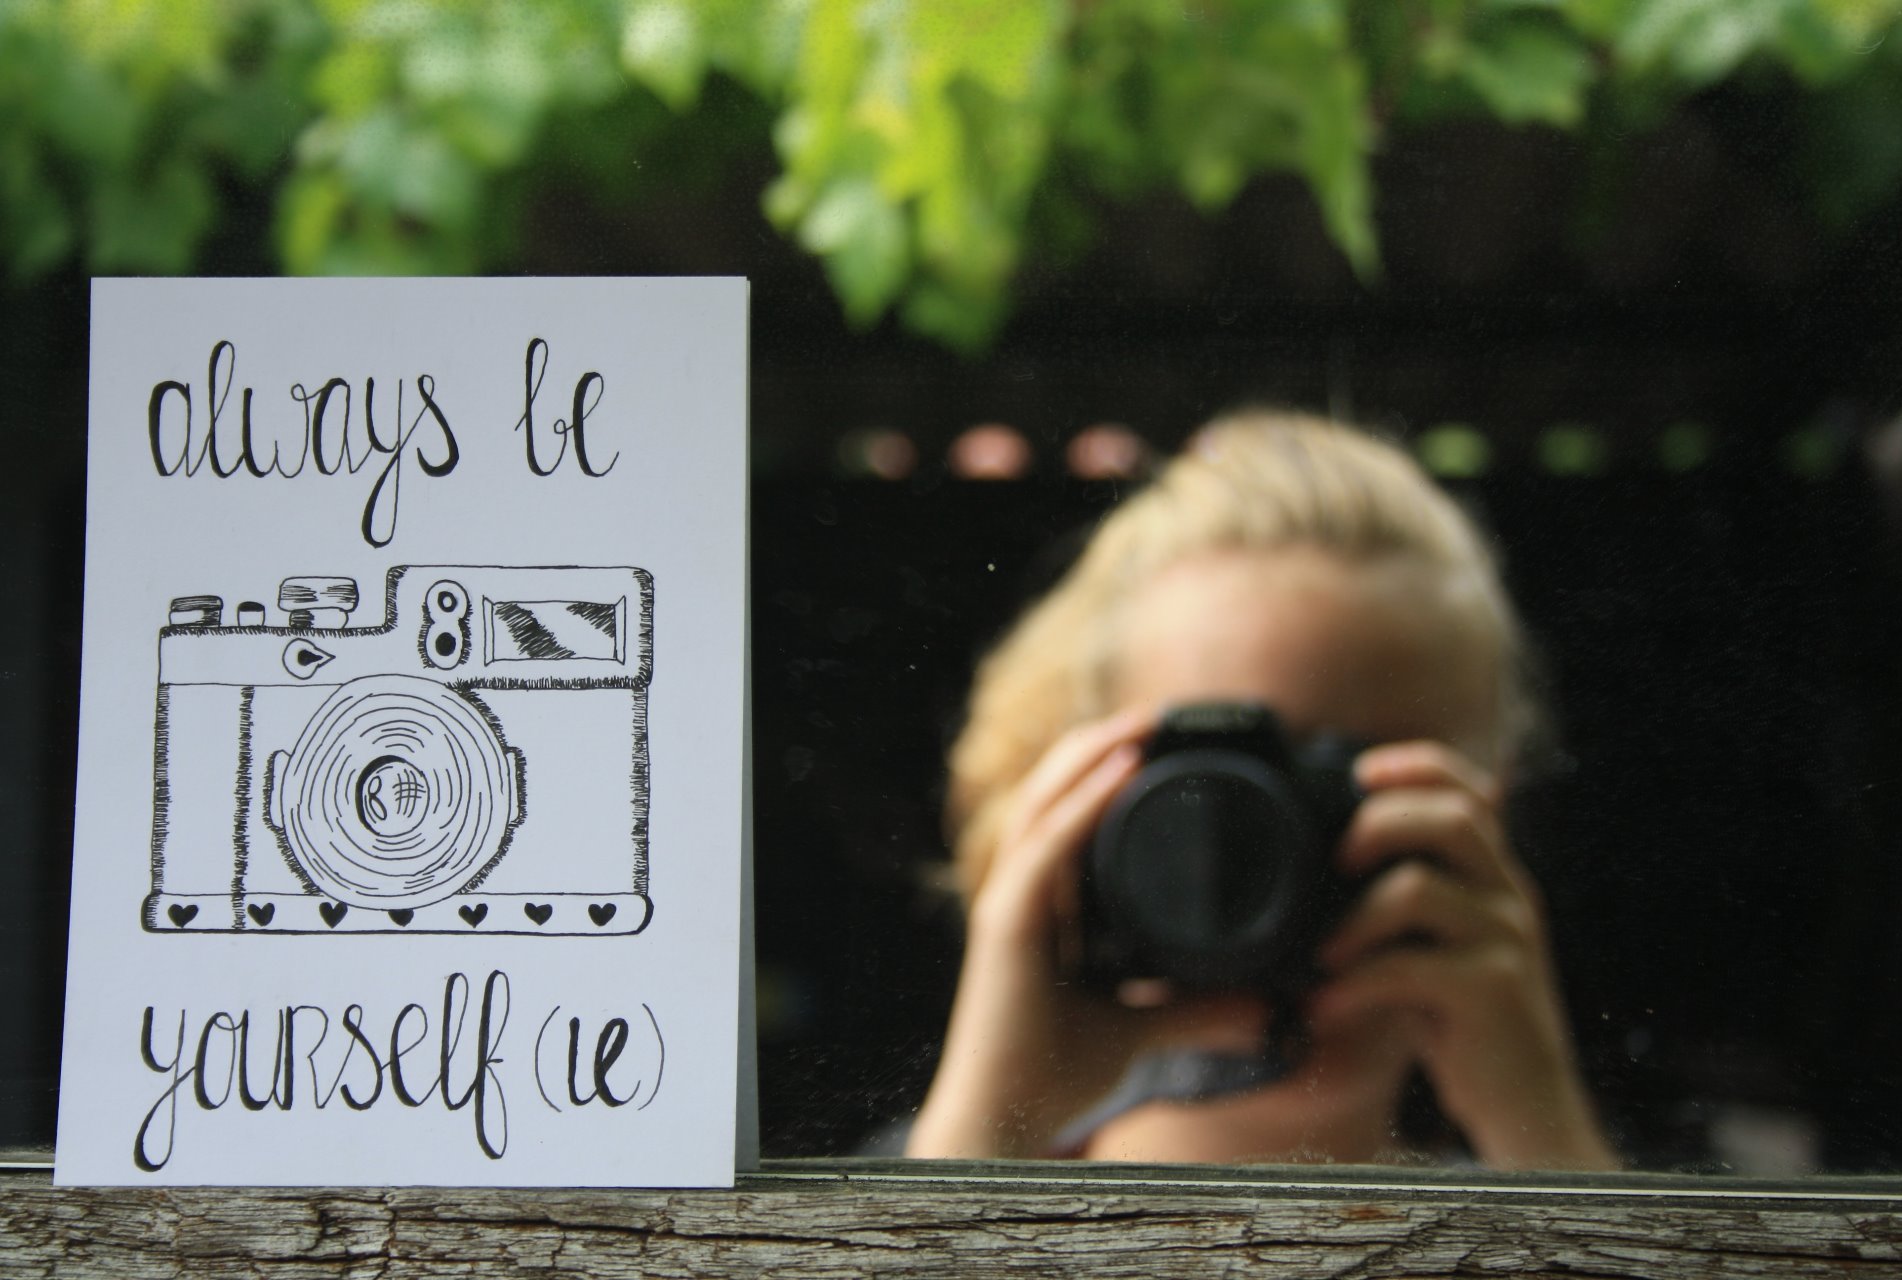 always be
yourself (ie)